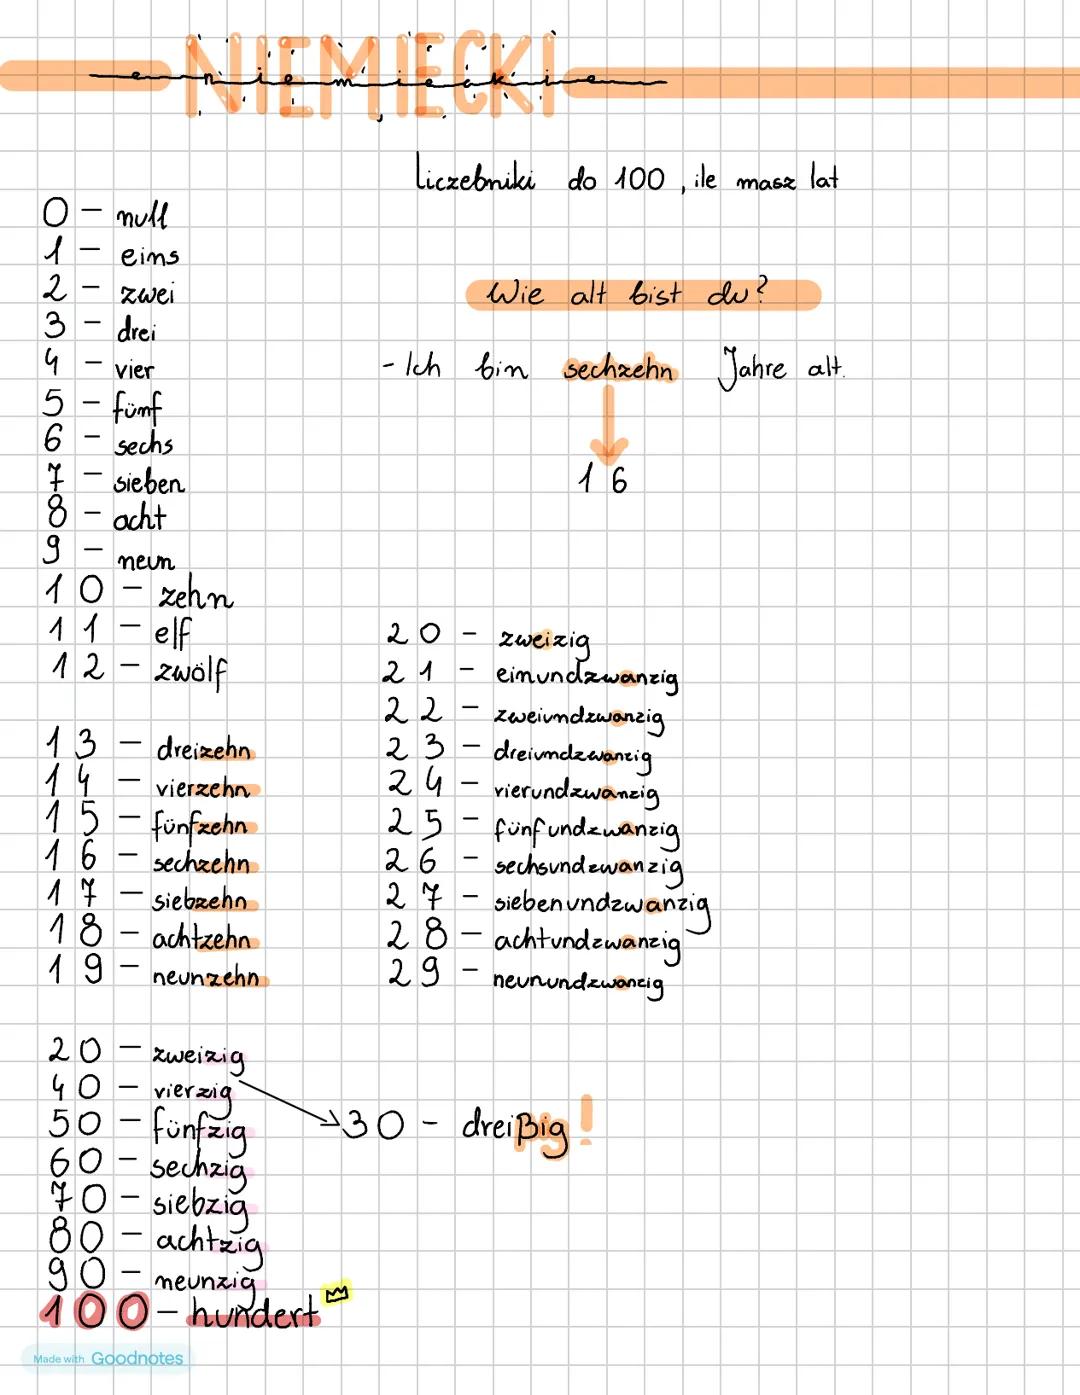 NIEMIECKI
niemieckie
Liczebniki do 100, ile masz lat
0 - null
1 - eins
2 - zwei
3 - drei
4 - vier
5 - fünf
6 - sechs
7 - sieben
8 - acht
9 - neun
10 - zehn
11 - elf
12 - zwölf
13 - dreizehn
14 - vierzehn
15 - fünfzehn
16 - sechzehn
17 - siebzehn
18 - achtzehn
19 - neunzehn
Wie alt bist du?
- Ich bin sechzehn Jahre alt.
16
20 - zweizig
21 - einundzwanzig
22 - zweiundzwanzig
23 - dreiundzwanzig
24 - vierundzwanzig
25 - fünfundzwanzig
26 - sechsundzwanzig
27 - siebenundzwanzig
28 - achtundzwanzig
29 - neunundzwanzig
20 - zweizig
40 - vierzig
50 - fünfzig
60 - sechzig
70 - siebzig
80 - achtzig
90 - neunzig
100 - hundert
30 - dreißig!
Made with Goodnotes